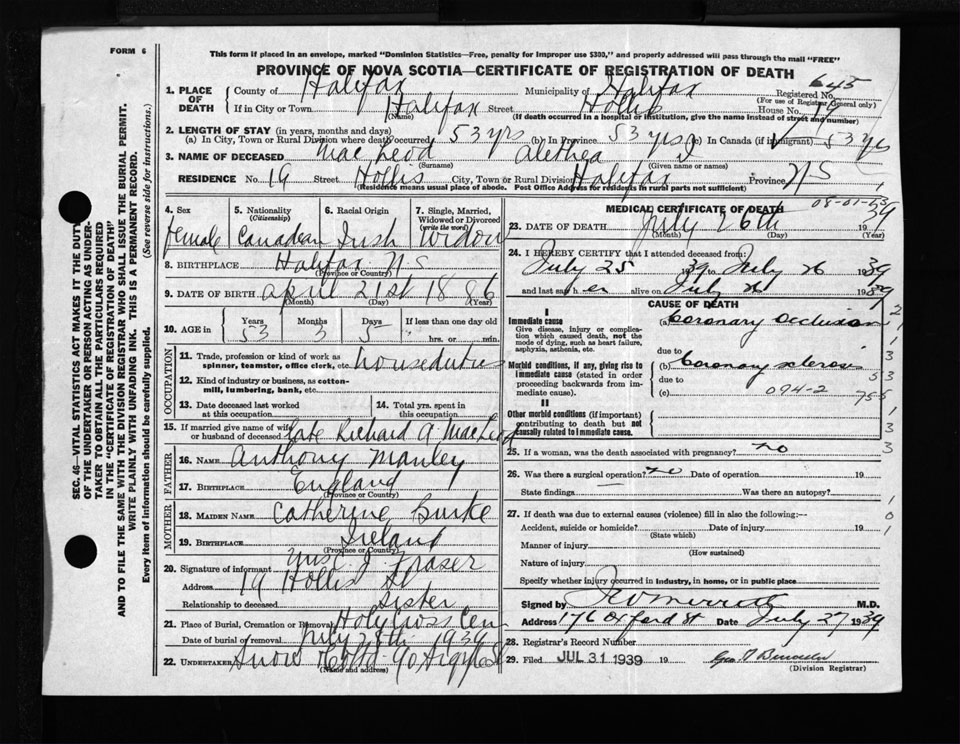 FORM 6
This form if placed in an envelope, marked "Dominion Statistics—Free, penalty for improper use $300," and properly addressed will pass through the mail "FREE"
PROVINCE OF NOVA SCOTIA—CERTIFICATE OF REGISTRATION OF DEATH
645
1. PLACE OF DEATH
County of Halifax
Municipality of Halifax
Registered No.
(For use of Registrar General only)
If in City or Town Halifax Street Hollis House No. 19
(Name) (If death occurred in a hospital or institution, give the name instead of street and number)
2. LENGTH OF STAY (in years, months and days)
(a) In City, Town or Rural Division where death occurred 53 yrs (b) In Province 53 yrs (c) In Canada (if immigrant) 53 yrs
3. NAME OF DECEASED MacLeod Alethea J
(Surname) (Given name or names)
RESIDENCE No. 19 Street Hollis City, Town or Rural Division Halifax Province N S
(Residence means usual place of abode. Post Office Address for residents in rural parts not sufficient)
4. Sex
female
5. Nationality
(Citizenship)
Canadian
6. Racial Origin
Irish
7. Single, Married, Widowed or Divorced
(write the word)
Widow
8. BIRTHPLACE Halifax N S
(Province or Country)
9. DATE OF BIRTH April 21st 1886
(Month) (Day) (Year)
10. AGE in
Years Months Days If less than one day old
53 3 5 hrs. or min.
OCCUPATION
11. Trade, profession or kind of work as spinner, teamster, office clerk, etc. houseduties
12. Kind of industry or business, as cotton-mill, lumbering, bank, etc.
13. Date deceased last worked at this occupation
14. Total yrs. spent in this occupation
15. If married give name of wife or husband of deceased Late Richard A MacLeod
FATHER
16. NAME Anthony Manley
17. BIRTHPLACE England
(Province or Country)
MOTHER
18. MAIDEN NAME Catherine Burke
19. BIRTHPLACE Ireland
(Province or Country)
20. Signature of informant Mrs. J Fraser
Address 19 Hollis St
Relationship to deceased Sister
21. Place of Burial, Cremation or Removal Holy Cross Cem
Date of burial or removal July 28th 1939
22. UNDERTAKER Snow 90 Argyle St
(Name and address)
MEDICAL CERTIFICATE OF DEATH
08-01-53
23. DATE OF DEATH July 26th 1939
(Month) (Day) (Year)
24. I HEREBY CERTIFY that I attended deceased from:
July 25 1939 to July 26 1939
and last saw h er alive on July 26 1939
CAUSE OF DEATH
I
Immediate cause
Give disease, injury or complication which caused death, not the mode of dying, such as heart failure, asphyxia, asthenia, etc.
(a) Coronary Occlusion
due to
Morbid conditions, if any, giving rise to immediate cause (stated in order proceeding backwards from immediate cause).
(b) Coronary sclerosis
due to
(c) 094-2
II
Other morbid conditions (if important) contributing to death but not causally related to immediate cause.
25. If a woman, was the death associated with pregnancy? no
26. Was there a surgical operation? no Date of operation 19
State findings — Was there an autopsy?
27. If death was due to external causes (violence) fill in also the following:—
Accident, suicide or homicide? Date of injury 19
(State which)
Manner of injury
(How sustained)
Nature of injury
Specify whether injury occurred in industry, in home, or in public place
Signed by M.D.
Address 176 Oxford St Date July 27 1939
28. Registrar's Record Number
29. Filed JUL 31 1939 19
(Division Registrar)
SEC. 46—VITAL STATISTICS ACT MAKES IT THE DUTY
OF THE UNDERTAKER OR PERSON ACTING AS UNDER-
TAKER TO OBTAIN ALL THE PARTICULARS REQUIRED
IN THE "CERTIFICATE OF REGISTRATION OF DEATH"
AND TO FILE THE SAME WITH THE DIVISION REGISTRAR WHO SHALL ISSUE THE BURIAL PERMIT.
WRITE PLAINLY WITH UNFADING INK. THIS IS A PERMANENT RECORD.
Every item of information should be carefully supplied. (See reverse side for instructions.)